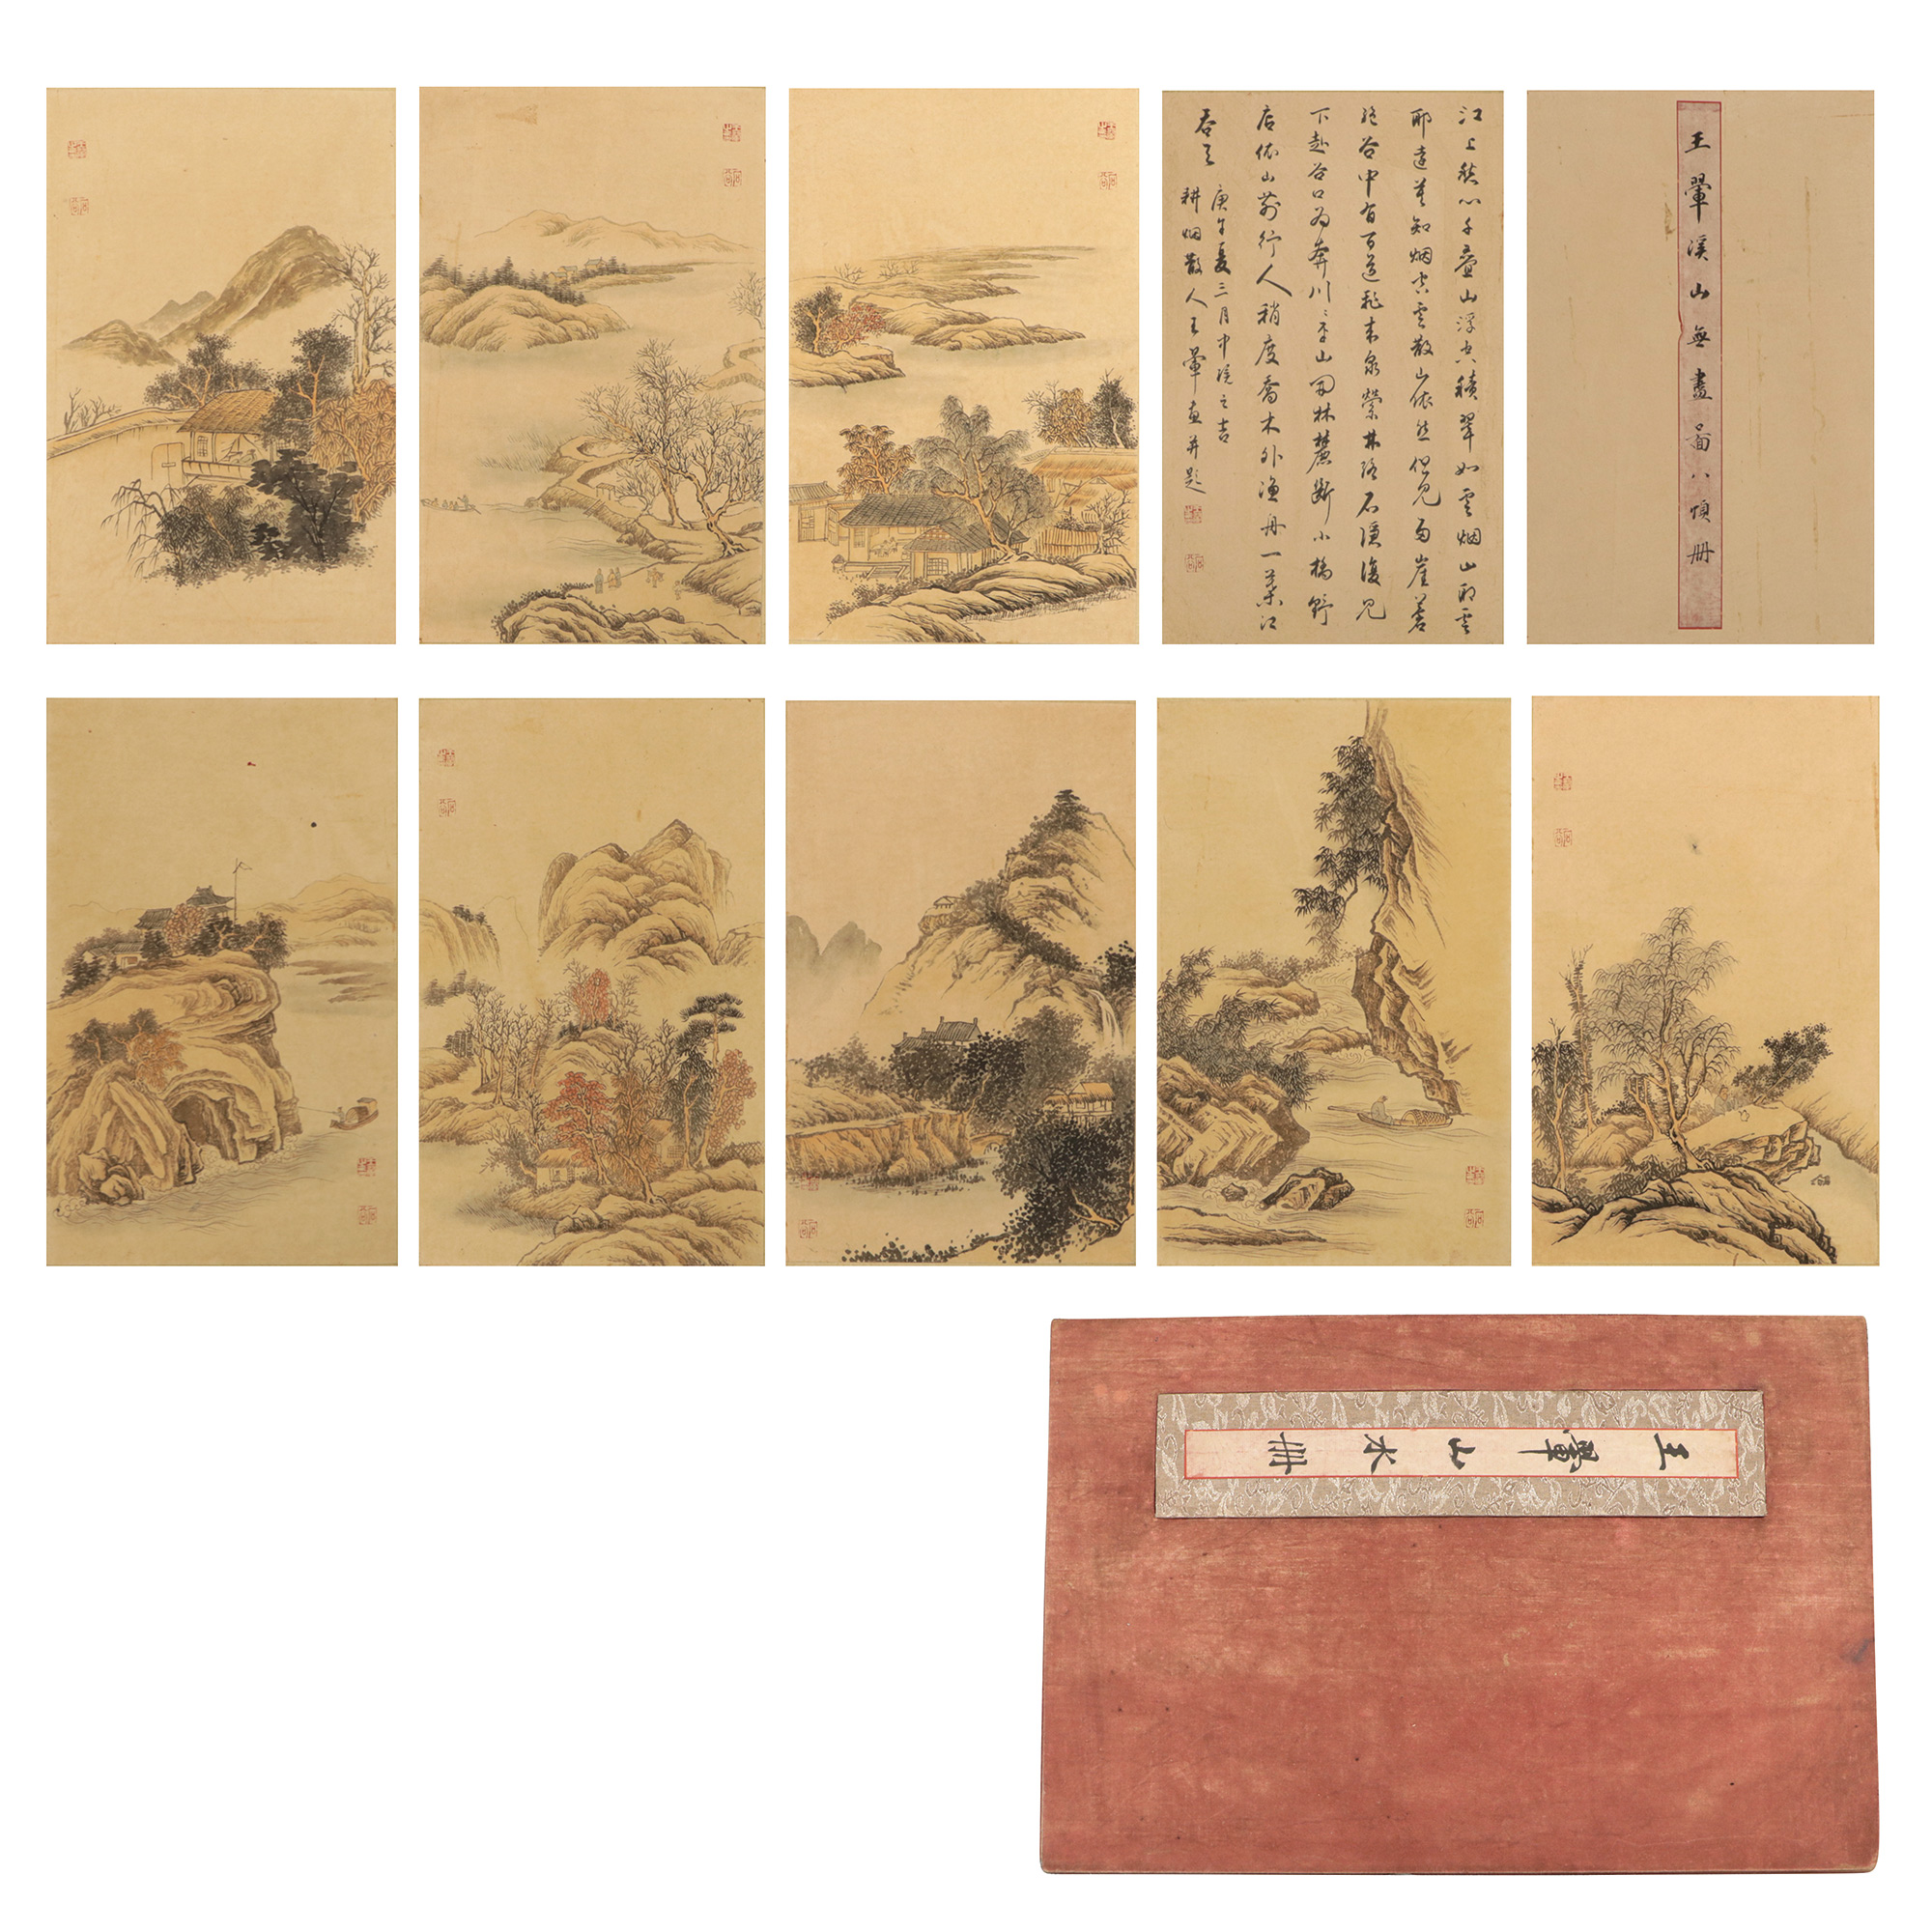 王翬溪山無盡啚八幀册
江上愁心千疊山浮空積翠如雲烟山耶雲
耶遠莫知烟空雲散山依然但見兩崖蒼
絕谷中有百道飛來泉縈林絡石隱復見
下赴谷口為奔川〻平山開林麓斷小橋野
店依山前行人稍度喬木外漁舟一葉江
吞天
庚午夏三月中浣之吉
耕烟散人王翬畫并題
王翬山水册